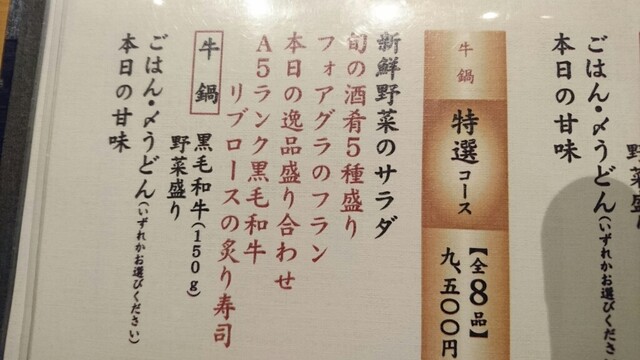 野菜
ごはん・〆うどん(いずれかお選びください)
本日の甘味
牛鍋
特選コース
【全8品】
九、五〇〇円
新鮮野菜のサラダ
旬の酒肴5種盛り
フォアグラのフラン
本日の逸品盛り合わせ
A5ランク黒毛和牛
リブロースの炙り寿司
牛鍋
黒毛和牛(150g)
野菜盛り
ごはん・〆うどん(いずれかお選びください)
本日の甘味